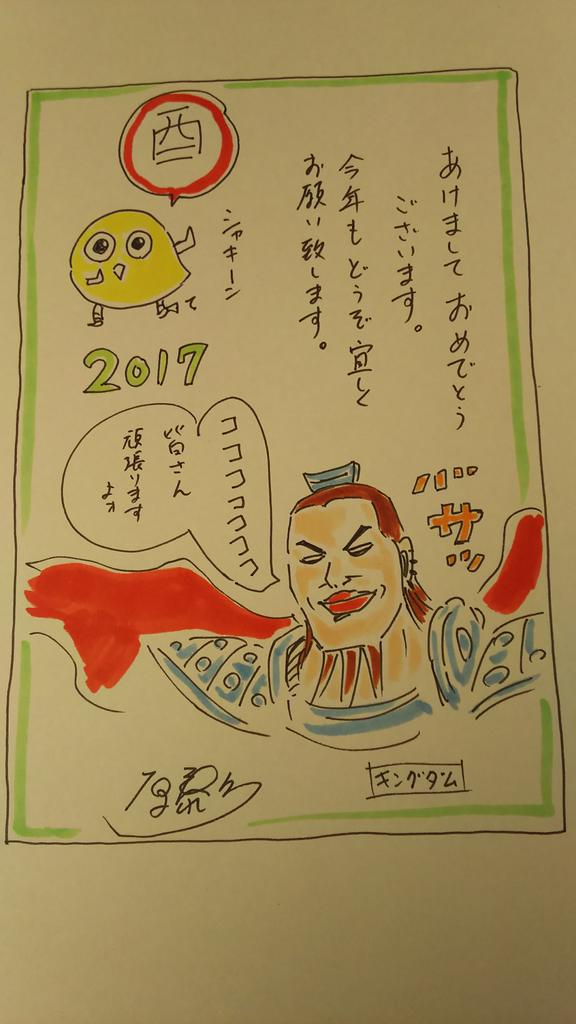 あけまして おめでとう
ございます。
今年も どうぞ 宜しく
お願い致します。
酉
シャキーン
2017
コココココココ
皆さん
頑張ります
よォ
バサッ
原泰久
キングダム